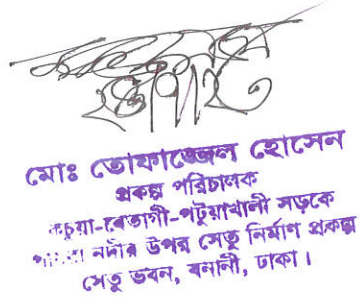 মোঃ তোফাজ্জেল হোসেন
প্রকল্প পরিচালক
কচুয়া-বেতাগী-পটুয়াখালী সড়কে
নদীর উপর সেতু নির্মাণ প্রকল্প
সেতু ভবন, বনানী, ঢাকা।